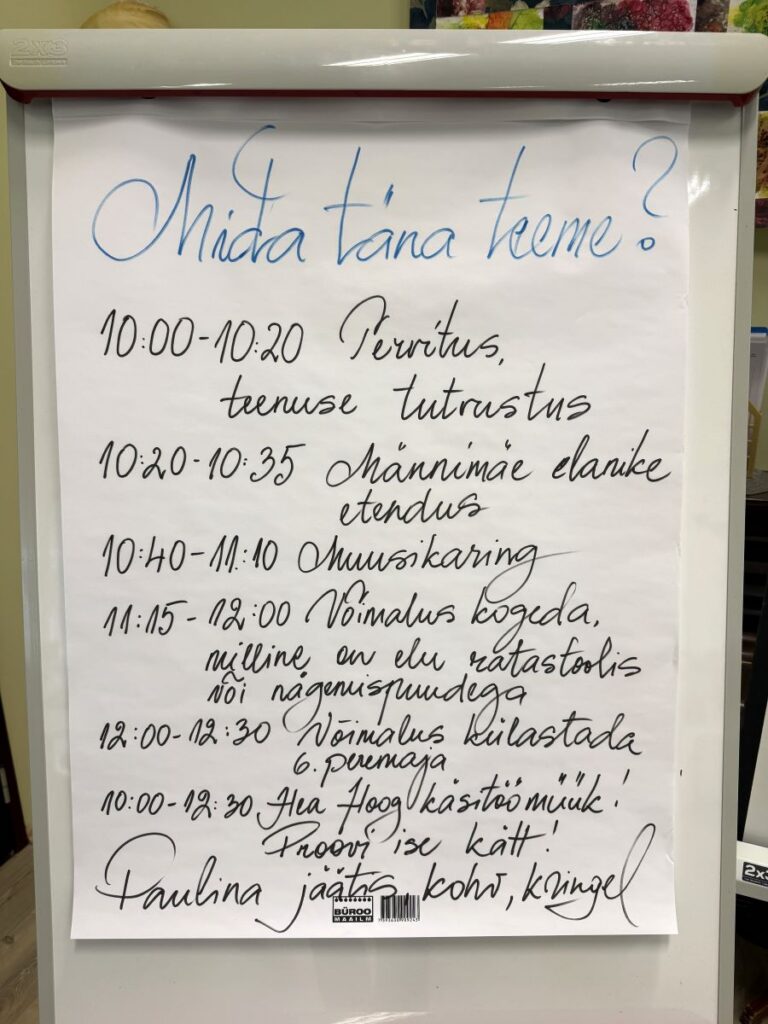 2x3
Mida täna teeme?
10:00-10:20 Tervitus,
teenuse tutvustus
10:20-10:35 Männimäe elanike
etendus
10:40-11:10 Muusikaring
11:15-12:00 Võimalus kogeda,
milline on elu ratastoolis
või nägemispuudega
12:00-12:30 Võimalus külastada
6. peremaja
10:00-12:30 Hea Hoog käsitöömüük!
Proovi ise kätt!
Paulina jäätis, kohv, kringel
BÜROO
MAAILM
2x3